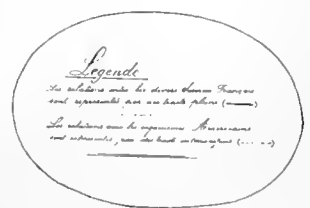 Légende
Les relations entre les divers bureaux Français
sont représentés par un trait plein (——)
Les relations avec les organismes Américains
sont représentés, par des traits interrompus (--- --)